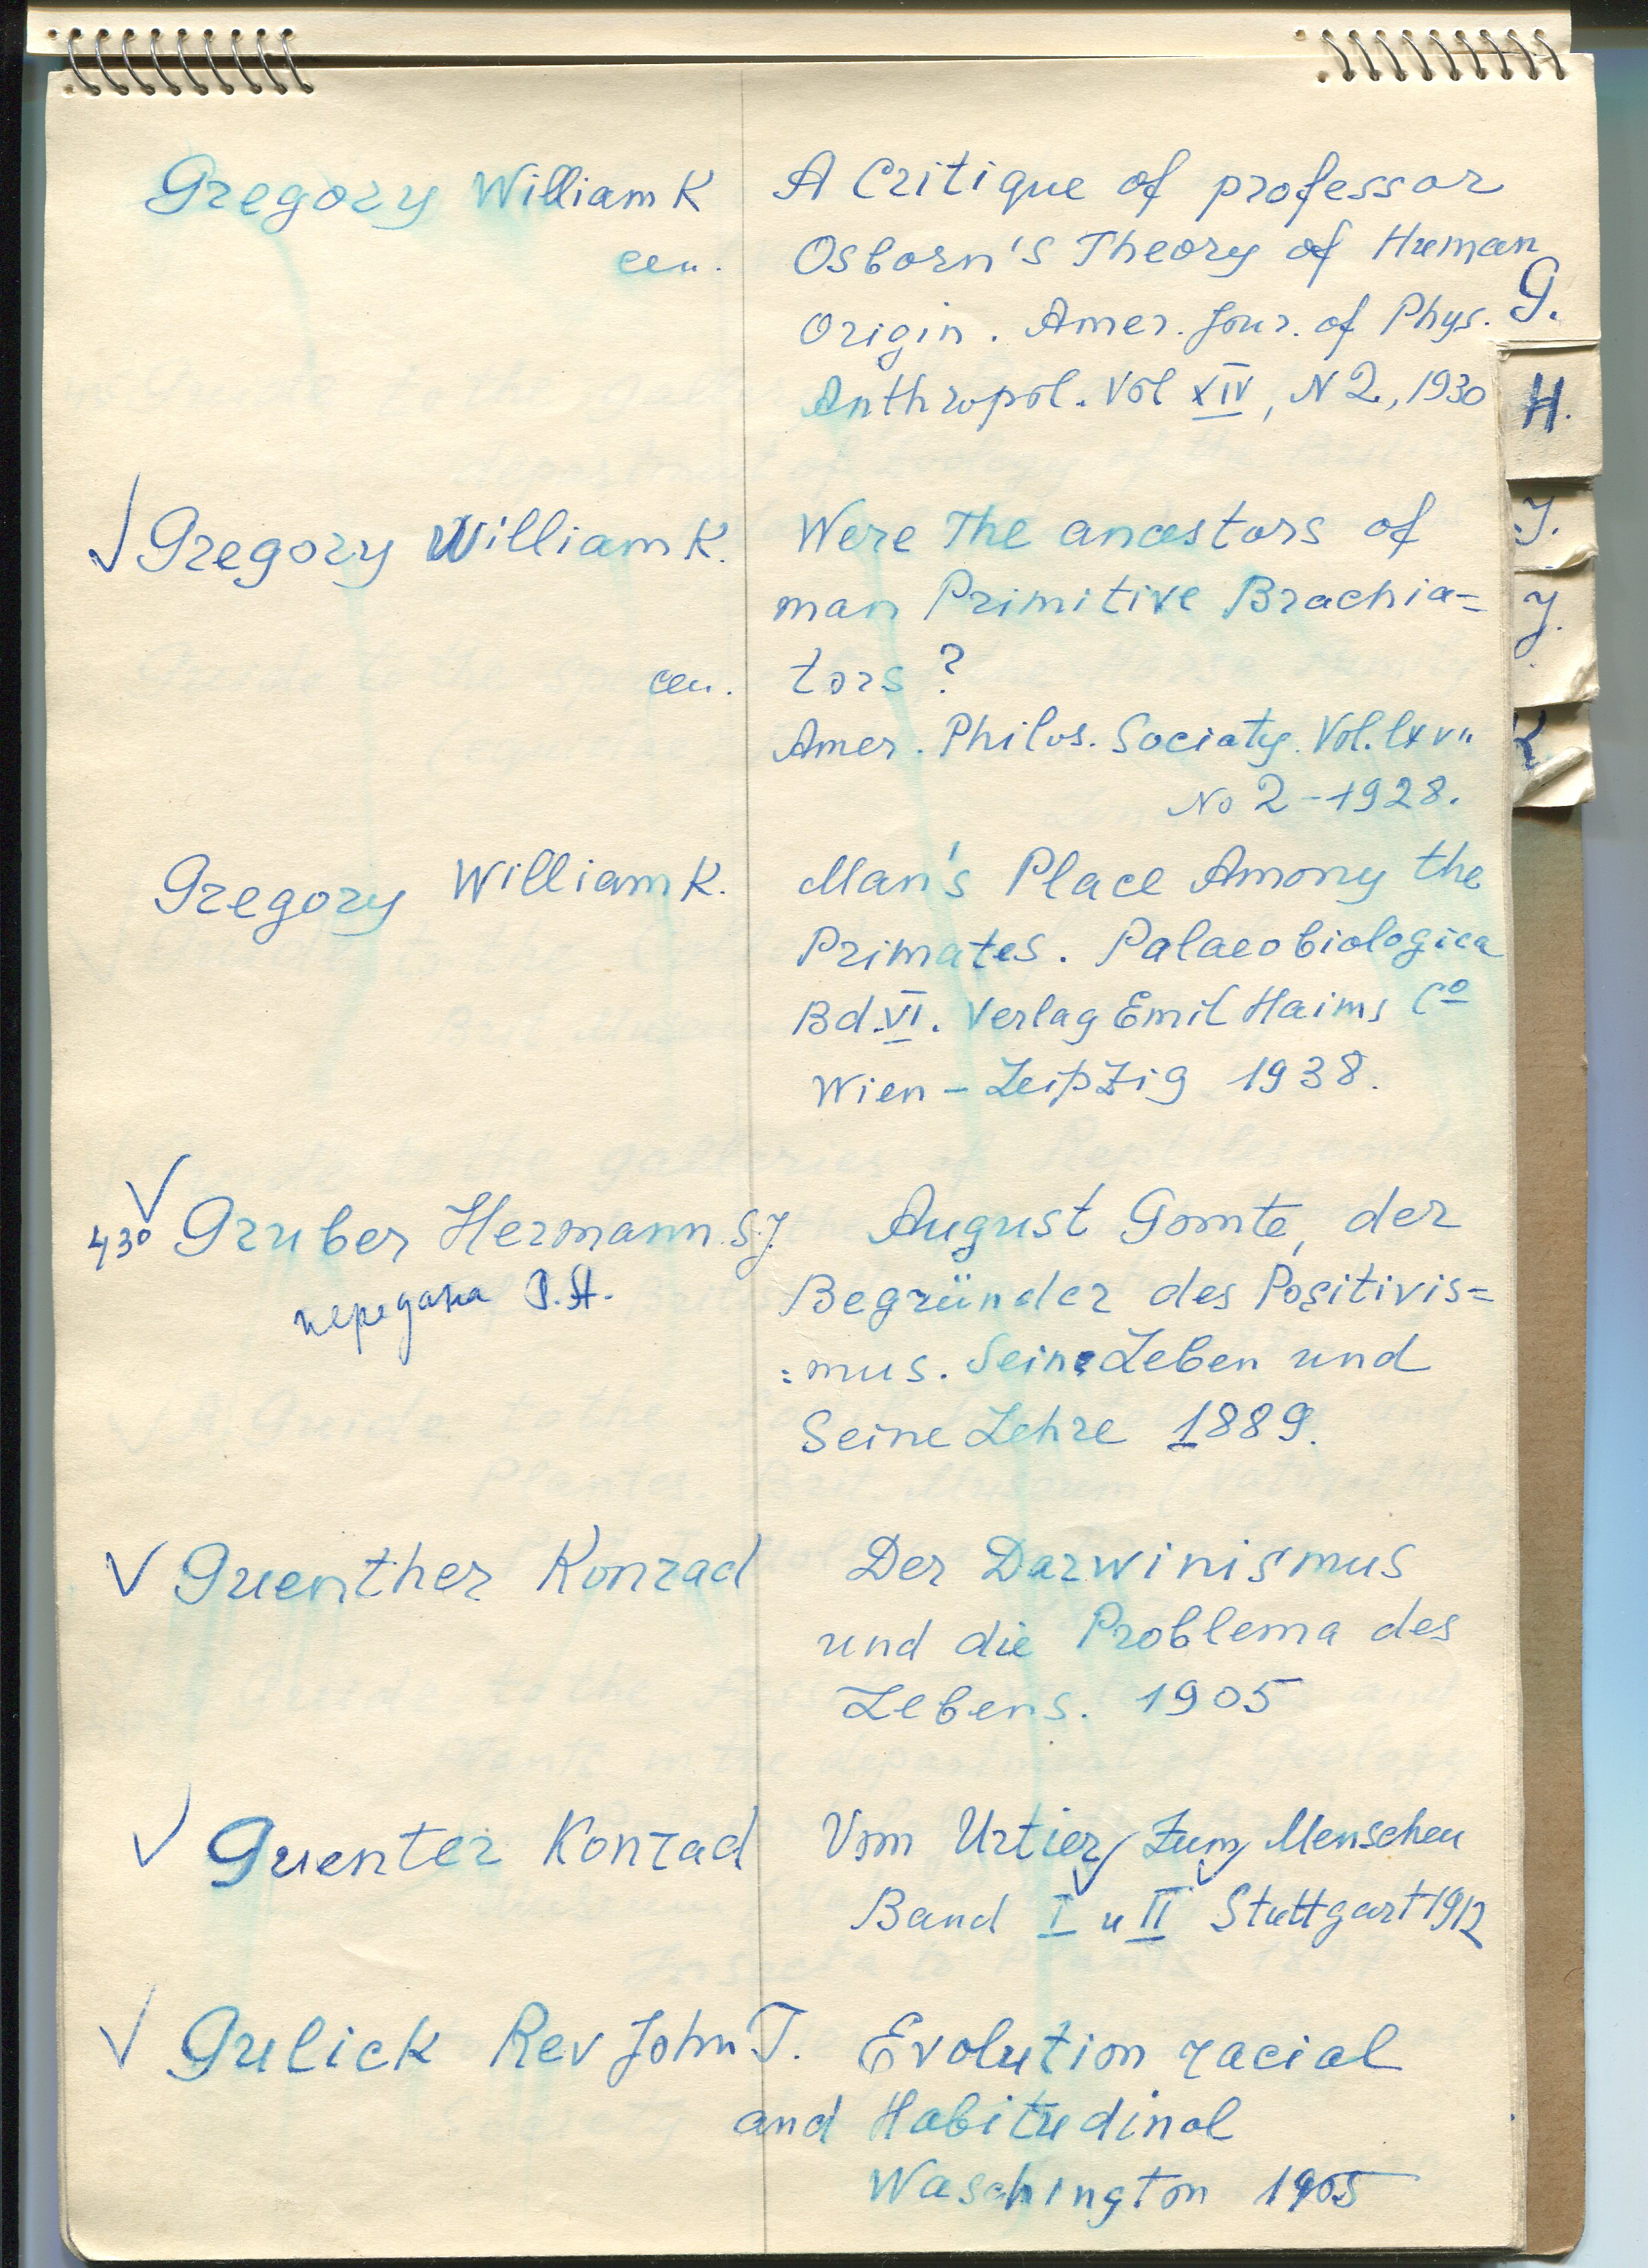 Gregory William K
сеп.
A Critique of professor
Osborn's Theory of Human
Origin. Amer. Jour. of Phys.
Anthropol. Vol XIV, N 2, 1930
Gregory William K.
сеп.
Were The ancestors of
man Primitive Brachia=
tors ?
Amer. Philos. Sociaty. Vol. lxvıı
No 2 - 1928.
Gregory William K.
Man's Place Among the
Primates. Palaeobiologica
Bd. VI. Verlag Emil Haims Co
Wien - Leipzig 1938.
430 Gruber Hermann S.J.
передана Р.Я.
August Gomte, der
Begründer des Positivis=
=mus. Seine Leben und
Seine Lehre 1889.
Guenther Konrad
Der Darwinismus
und die Problema des
Lebens. 1905
Guenter Konrad
Vom Urtier zum Menschen
Band I u II Stuttgart 1912
Gulick Rev John T.
Evolution racial
and Habitudinal
Waschington 1905
G.
H.
J.
J.
K